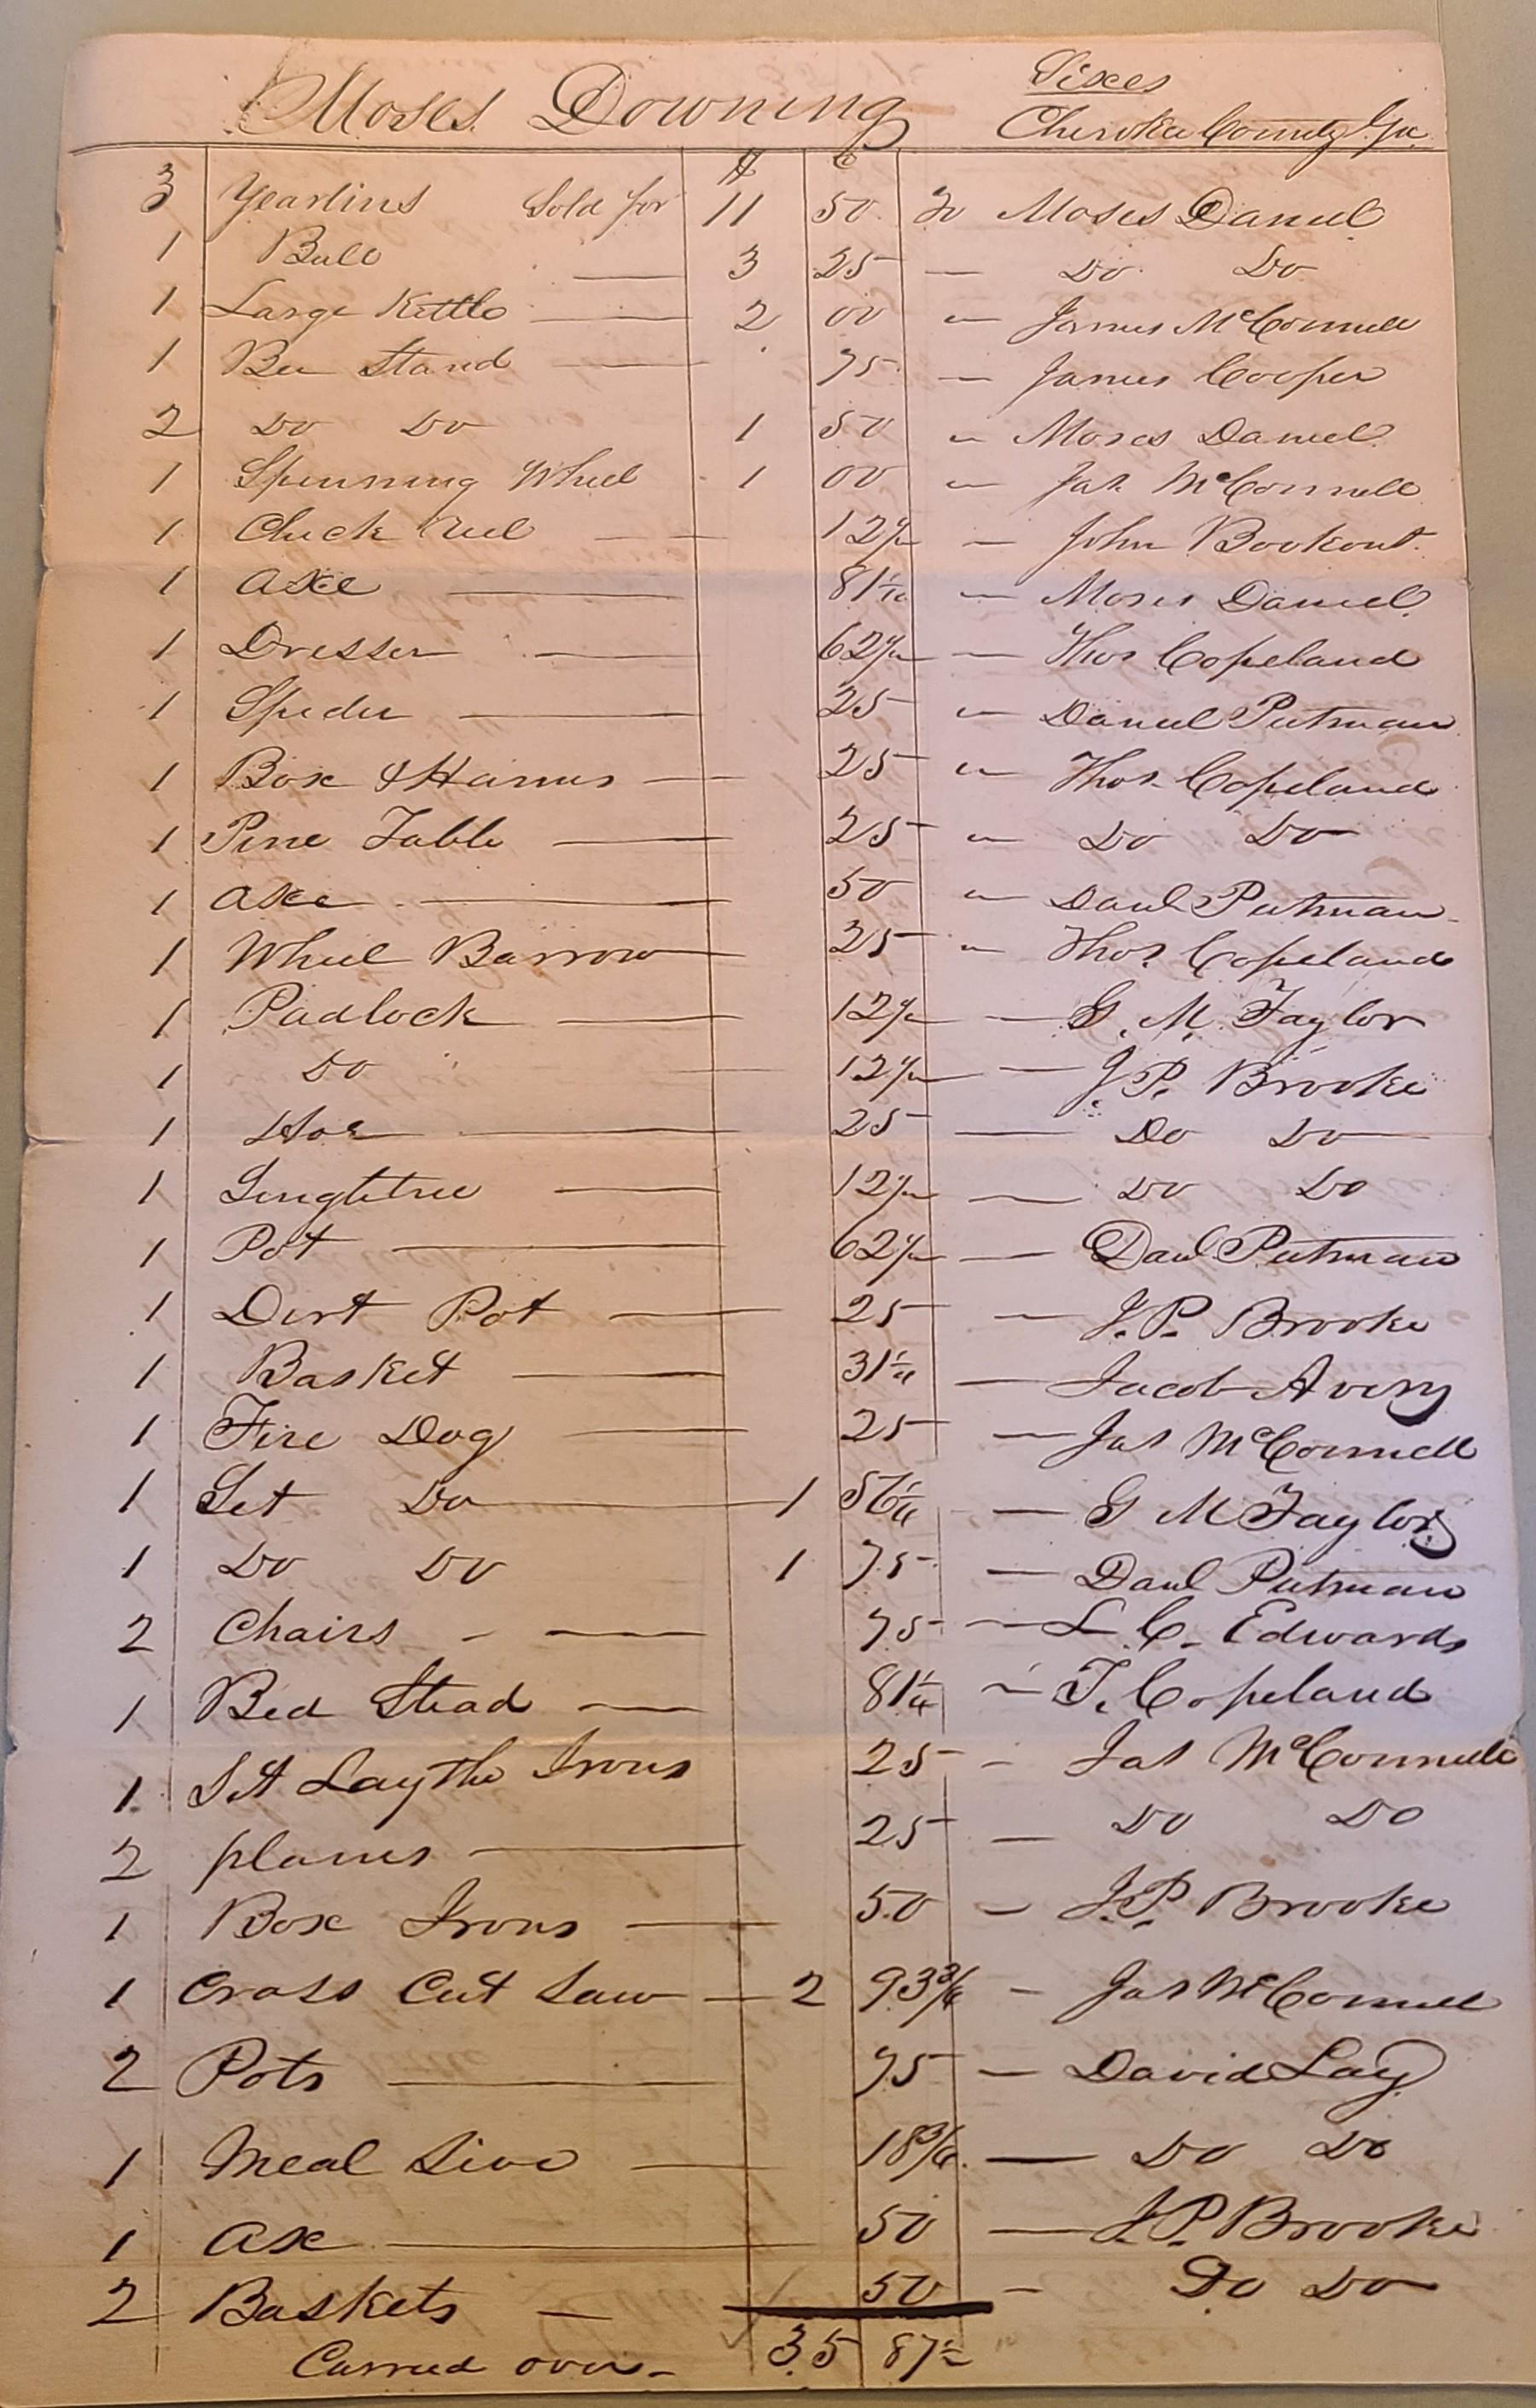 Sixes
Moses Downing Cherokee County Ga.
$ c
3 Yearlins Sold for 11 50 To Moses Daniel
1 Bull — 3 25 — Do Do
1 Large Kettle — 2 00 " James McConnell
1 Bee Stand — 75 — James Cooper
2 Do Do 1 50 " Moses Daniel
1 Spinning Wheel 1 00 " Jas. McConnell
1 Check Reel — 12½ — John Bookout
1 Axe — 81¼ — Moses Daniel
1 Dresser — 62½ — Thos Copeland
1 Spider — 25 " Daniel Putman
1 Box & Hames — 25 " Thos. Copeland
1 Pine Table — 25 " Do Do
1 Axe — 50 " Danl Putman
1 Wheel Barrow — 25 " Thos. Copeland
1 Padlock — 12½ — G. M. Taylor
1 Do — 12½ — J. P. Brooke
1 Hoe — 25 — Do Do
1 Singletree — 12½ — Do Do
1 Pot — 62½ — Danl Putman
1 Dirt Pot — 25 — J. P. Brooke
1 Basket — 31¼ — Jacob Avery
1 Fire Dog — 25 — Jas McConnell
1 Set Do — 1 56¼ — G M Taylor
1 Do Do 1 75 — Danl Putman
2 Chairs — 75 — L. C. Edwards
1 Bed Stead — 81¼ — T. Copeland
1 Set Laythe Irons 25 — Jas McConnell
2 planes — 25 — Do Do
1 Box Irons — 50 — J. P. Brooke
1 Cross Cut Saw — 2 93¾ — Jas McConnell
2 Pots — 75 — David Lay
1 Meal Sive — 18¾ — Do Do
1 Ax — 50 — J. P. Brooke
2 Baskets — 50 — Do Do
Carried over — 35 87½